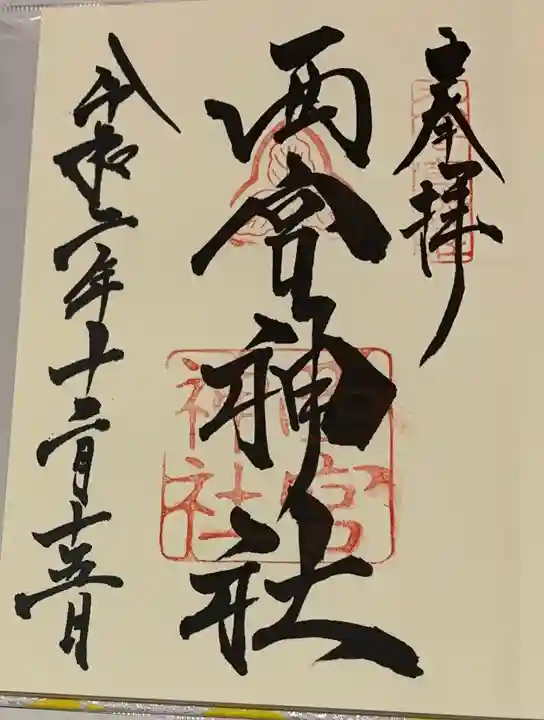 奉拝
西宮神社
令和二年十二月十五日
西宮
神社